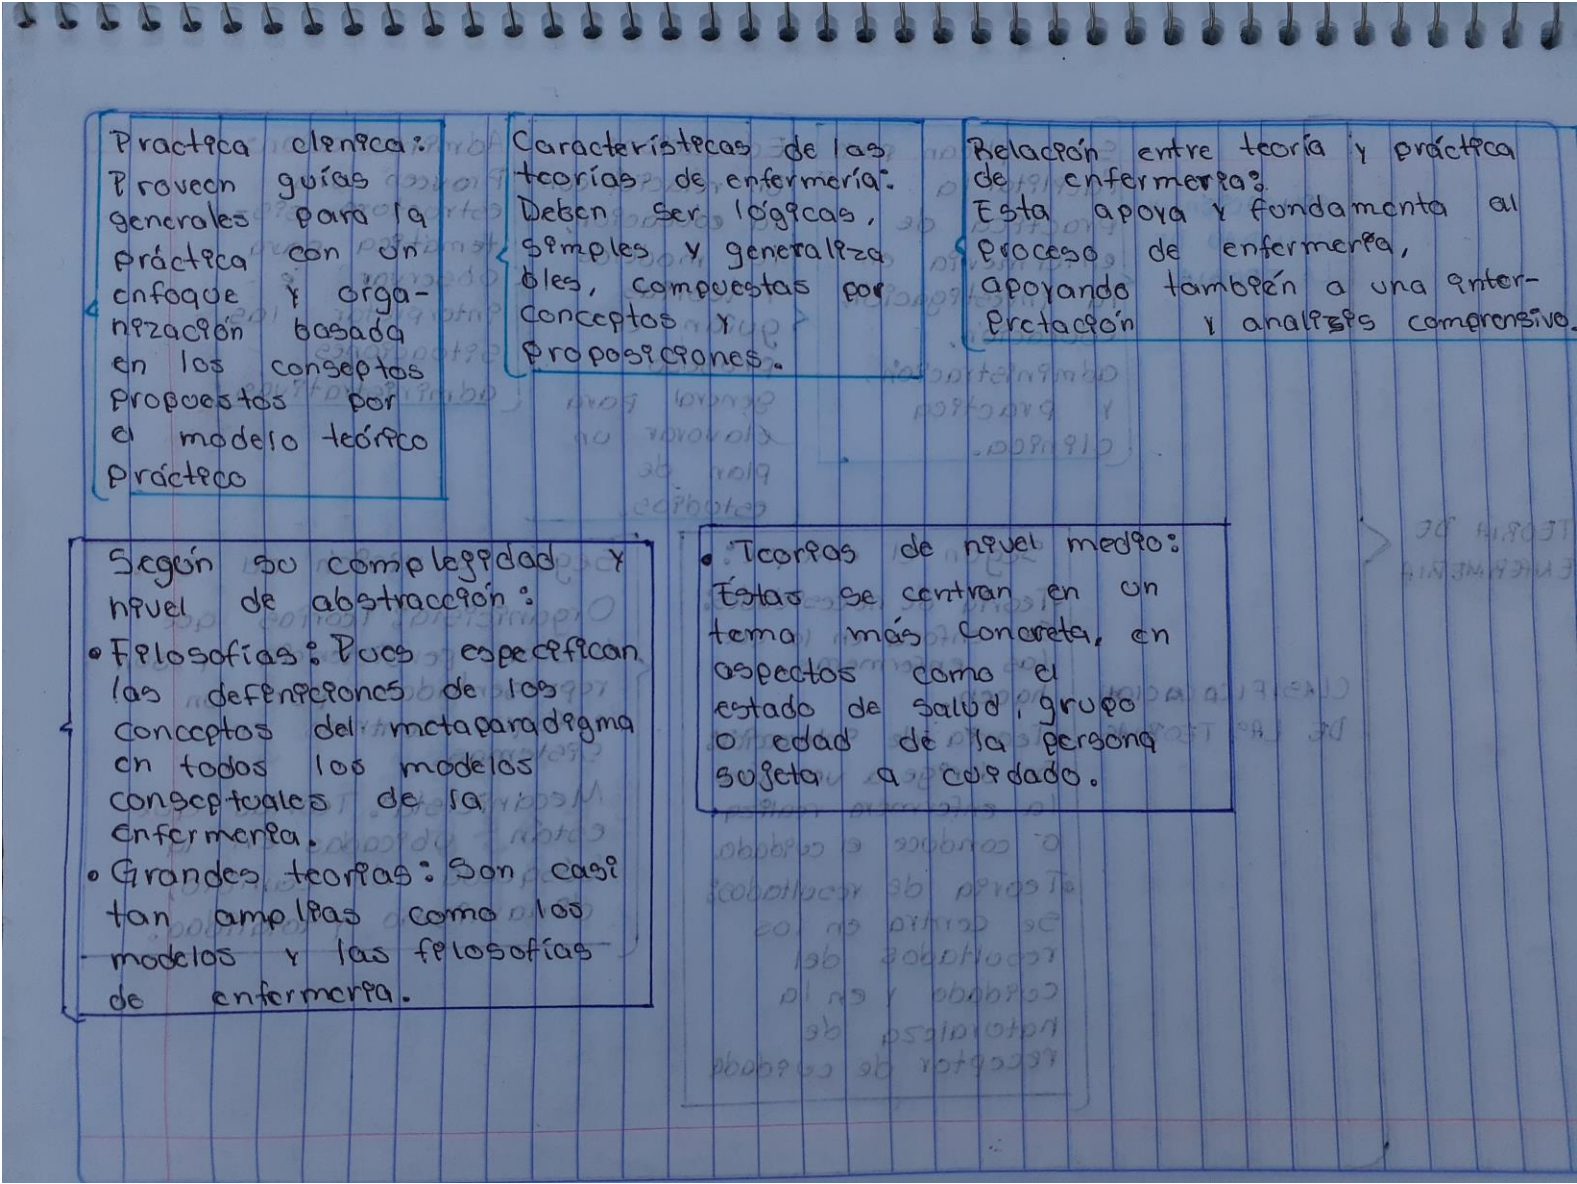 Practica clinica:
Proveen guías
generales para la
práctica con un
enfoque y orga-
nización basada
en los conseptos
propuestos por
el modelo teórico
práctico
Características de las
teorías de enfermería:
Deben ser lógicas,
simples y generaliza
bles, compuestas por
conceptos y
proposiciones.
Relación entre teoría y práctica
de enfermeria:
Esta apoya y fundamenta al
proceso de enfermería,
apoyando también a una inter-
pretación y analisis comprensivo.
Según su complegidad y
nivel de abstracción:
• Filosofías: Pues especifican
las definiciones de los
conceptos del metaparadigma
en todos los modelos
conseptuales de la
enfermeria.
• Grandes teorias: Son casi
tan amplias como los
modelos y las filosofías
de enfermeria.
• Teorias de nivel medio:
Estas se centran en un
tema más concreta, en
aspectos como el
estado de salud, grupo
o edad de la persona
sujeta a cuidado.